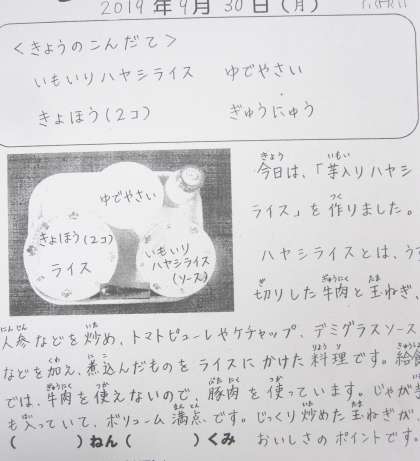 2019年9月30日(月)
<きょうのこんだて>
いもいりハヤシライス ゆでやさい
きょほう(2コ) ぎゅうにゅう
ゆでやさい
きょほう(2コ)
ライス
いもいり
ハヤシライス
(ソース)
今日は、「芋入りハヤシ
ライス」を作りました。
ハヤシライスとは、う
切りした牛肉と玉ねぎ
人参などを炒め、トマトピューレやケチャップ、デミグラスソース
などを加え、煮込んだものをライスにかけた料理です。給
では、牛肉を使えないので、豚肉を使っています。じゃが
も入っていて、ボリューム満点です。じっくり炒めた玉ねぎが、
おいしさのポイントです。
( )ねん( )くみ